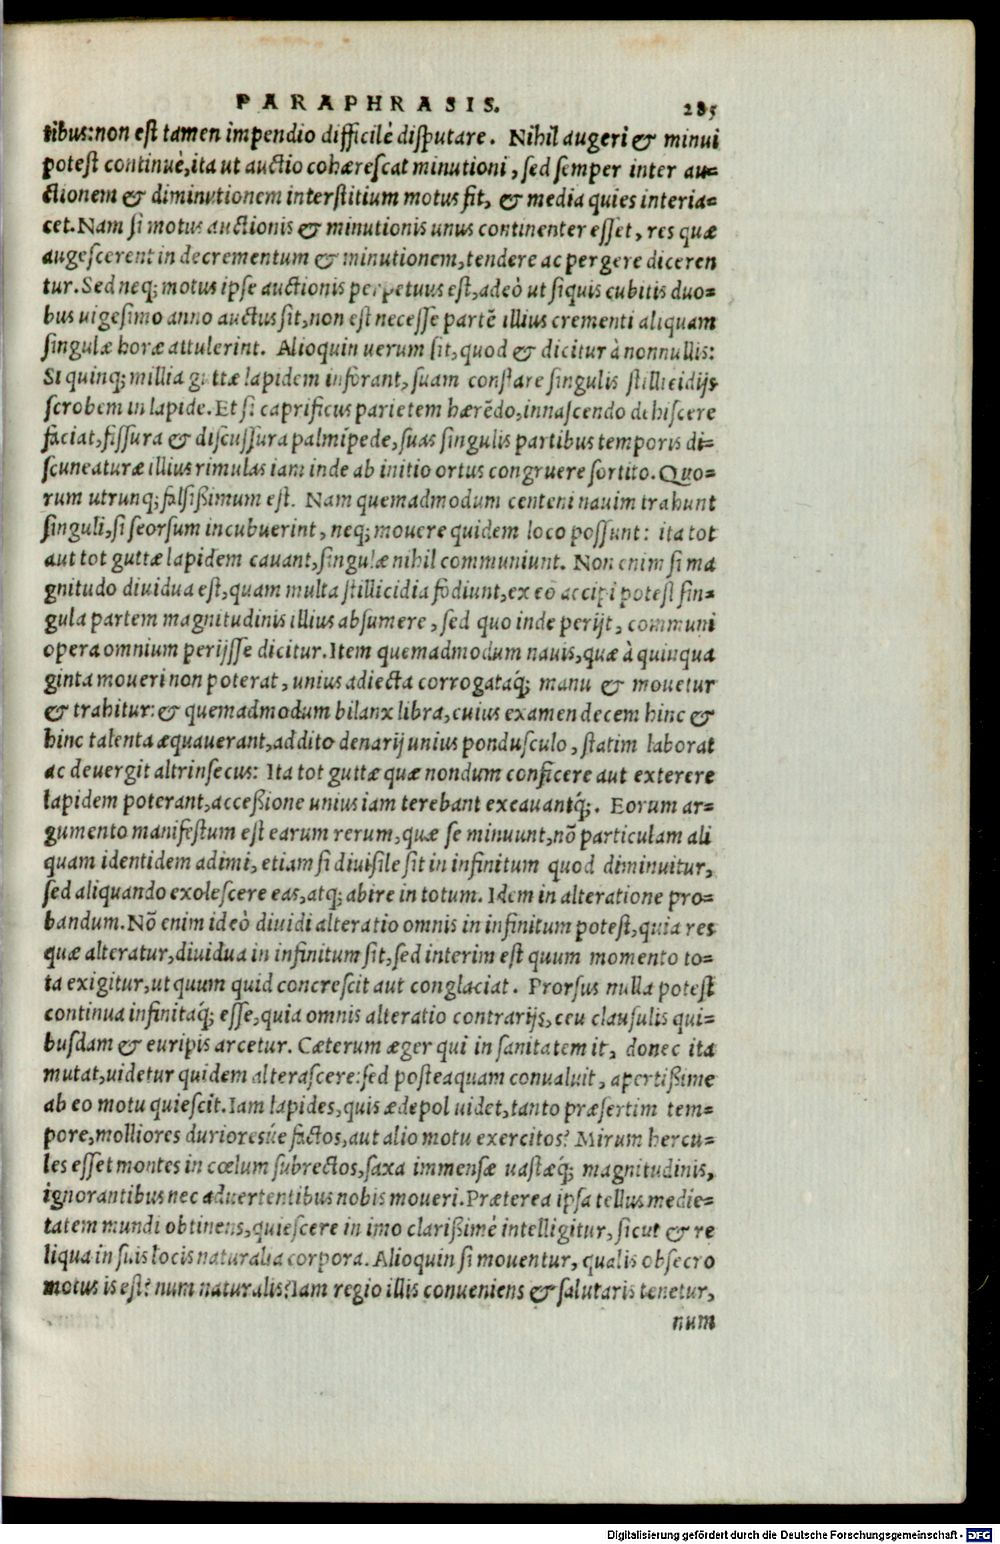 PARAPHRASIS. 285
tibus: non est tamen impendio difficilè disputare. Nihil augeri & minui
potest continuè, ita ut auctio cohærescat minutioni, sed semper inter au=
ctionem & diminutionem interstitium motus fit, & media quies interia=
cet. Nam si motus auctionis & minutionis unus continenter esset, res quæ
augescerent in decrementum & minutionem, tendere ac pergere diceren
tur. Sed neq; motus ipse auctionis perpetuus est, adeò ut si quis cubitis duo=
bus uigesimo anno auctus sit, non est necesse partē illius crementi aliquam
singulæ horæ attulerint. Alioquin uerum sit, quod & dicitur à nonnullis:
Si quinq; millia guttæ lapidem inforant, suam constare singulis stillicidijs
scrobem in lapide. Et si caprificus parietem hærēdo, innascendo dehiscere
faciat, fissura & discussura palmipede, suas singulis partibus temporis di=
scuneaturæ illius rimulas iam inde ab initio ortus congruere sortito. Quo=
rum utrunq; falsißimum est. Nam quemadmodum centeni nauim trahunt
singuli, si seorsum incubuerint, neq; mouere quidem loco possunt: ita tot
aut tot guttæ lapidem cauant, singulæ nihil communiunt. Non enim si ma
gnitudo diuidua est, quam multa stillicidia fodiunt, ex eo accipi potest sin=
gula partem magnitudinis illius absumere, sed quo inde perijt, communi
opera omnium perijsse dicitur. Item quemadmodum nauis, quæ à quinqua
ginta moueri non poterat, unius adiecta corrogataq́; manu & mouetur
& trahitur: & quemadmodum bilanx libra, cuius examen decem hinc &
hinc talenta æquauerant, addito denarij unius pondusculo, statim laborat
ac deuergit altrinsecus: Ita tot guttæ quæ nondum conficere aut exterere
lapidem poterant, acceßione unius iam terebant excauantq́;. Eorum ar=
gumento manifestum est earum rerum, quæ se minuunt, nō particulam ali
quam identidem adimi, etiam si diuisile sit in infinitum quod diminuitur,
sed aliquando exolescere eas, atq; abire in totum. Idem in alteratione pro=
bandum. Nō enim ideò diuidi alteratio omnis in infinitum potest, quia res
quæ alteratur, diuidua in infinitum sit, sed interim est quum momento to=
ta exigitur, ut quum quid concrescit aut conglaciat. Prorsus nulla potest
continua infinitaq́; esse, quia omnis alteratio contrarijs, ceu clausulis qui=
busdam & euripis arcetur. Cæterum æger qui in sanitatem it, donec ita
mutat, uidetur quidem alterascere: sed posteaquam conualuit, apertißime
ab eo motu quiescit. Iam lapides, quis ædepol uidet, tanto præsertim tem=
pore, molliores durioresúe factos, aut alio motu exercitos? Mirum hercu=
les esset montes in cœlum subrectos, saxa immensæ uastæq́; magnitudinis,
ignorantibus nec aduertentibus nobis moueri. Præterea ipsa tellus medie=
tatem mundi obtinens, quiescere in imo clarißimè intelligitur, sicut & re
liqua in suis locis naturalia corpora. Alioquin si mouentur, qualis obsecro
motus is est? num naturalis? Iam regio illis conueniens & salutaris tenetur,
num
Digitalisierung gefördert durch die Deutsche Forschungsgemeinschaft - DFG